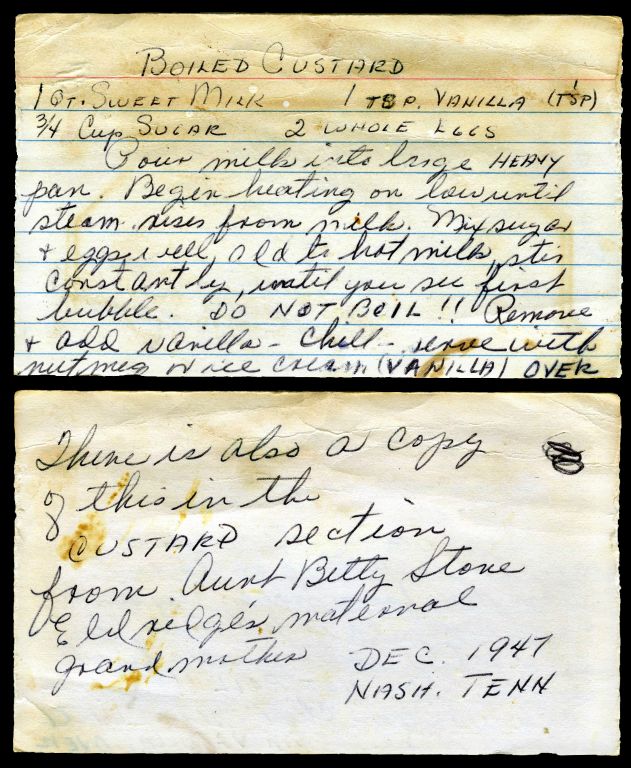 BOILED CUSTARD
1 QT. SWEET MILK 1 TSP. VANILLA (1 TSP)
3/4 Cup SUGAR 2 WHOLE EGGS
Pour milk into large HEAVY
pan. Begin heating on low until
steam rises from milk. Mix sugar
+ eggs well, add to hot milk, stir
constantly, until you see first
bubble. DO NOT BOIL !! Remove
+ add vanilla - Chill - serve with
nutmeg or ice cream (VANILLA) OVER
There is also a copy
of this in the
CUSTARD section
from Aunt Betty Stone
Eldredge's maternal
grandmother DEC. 1947
NASH. TENN